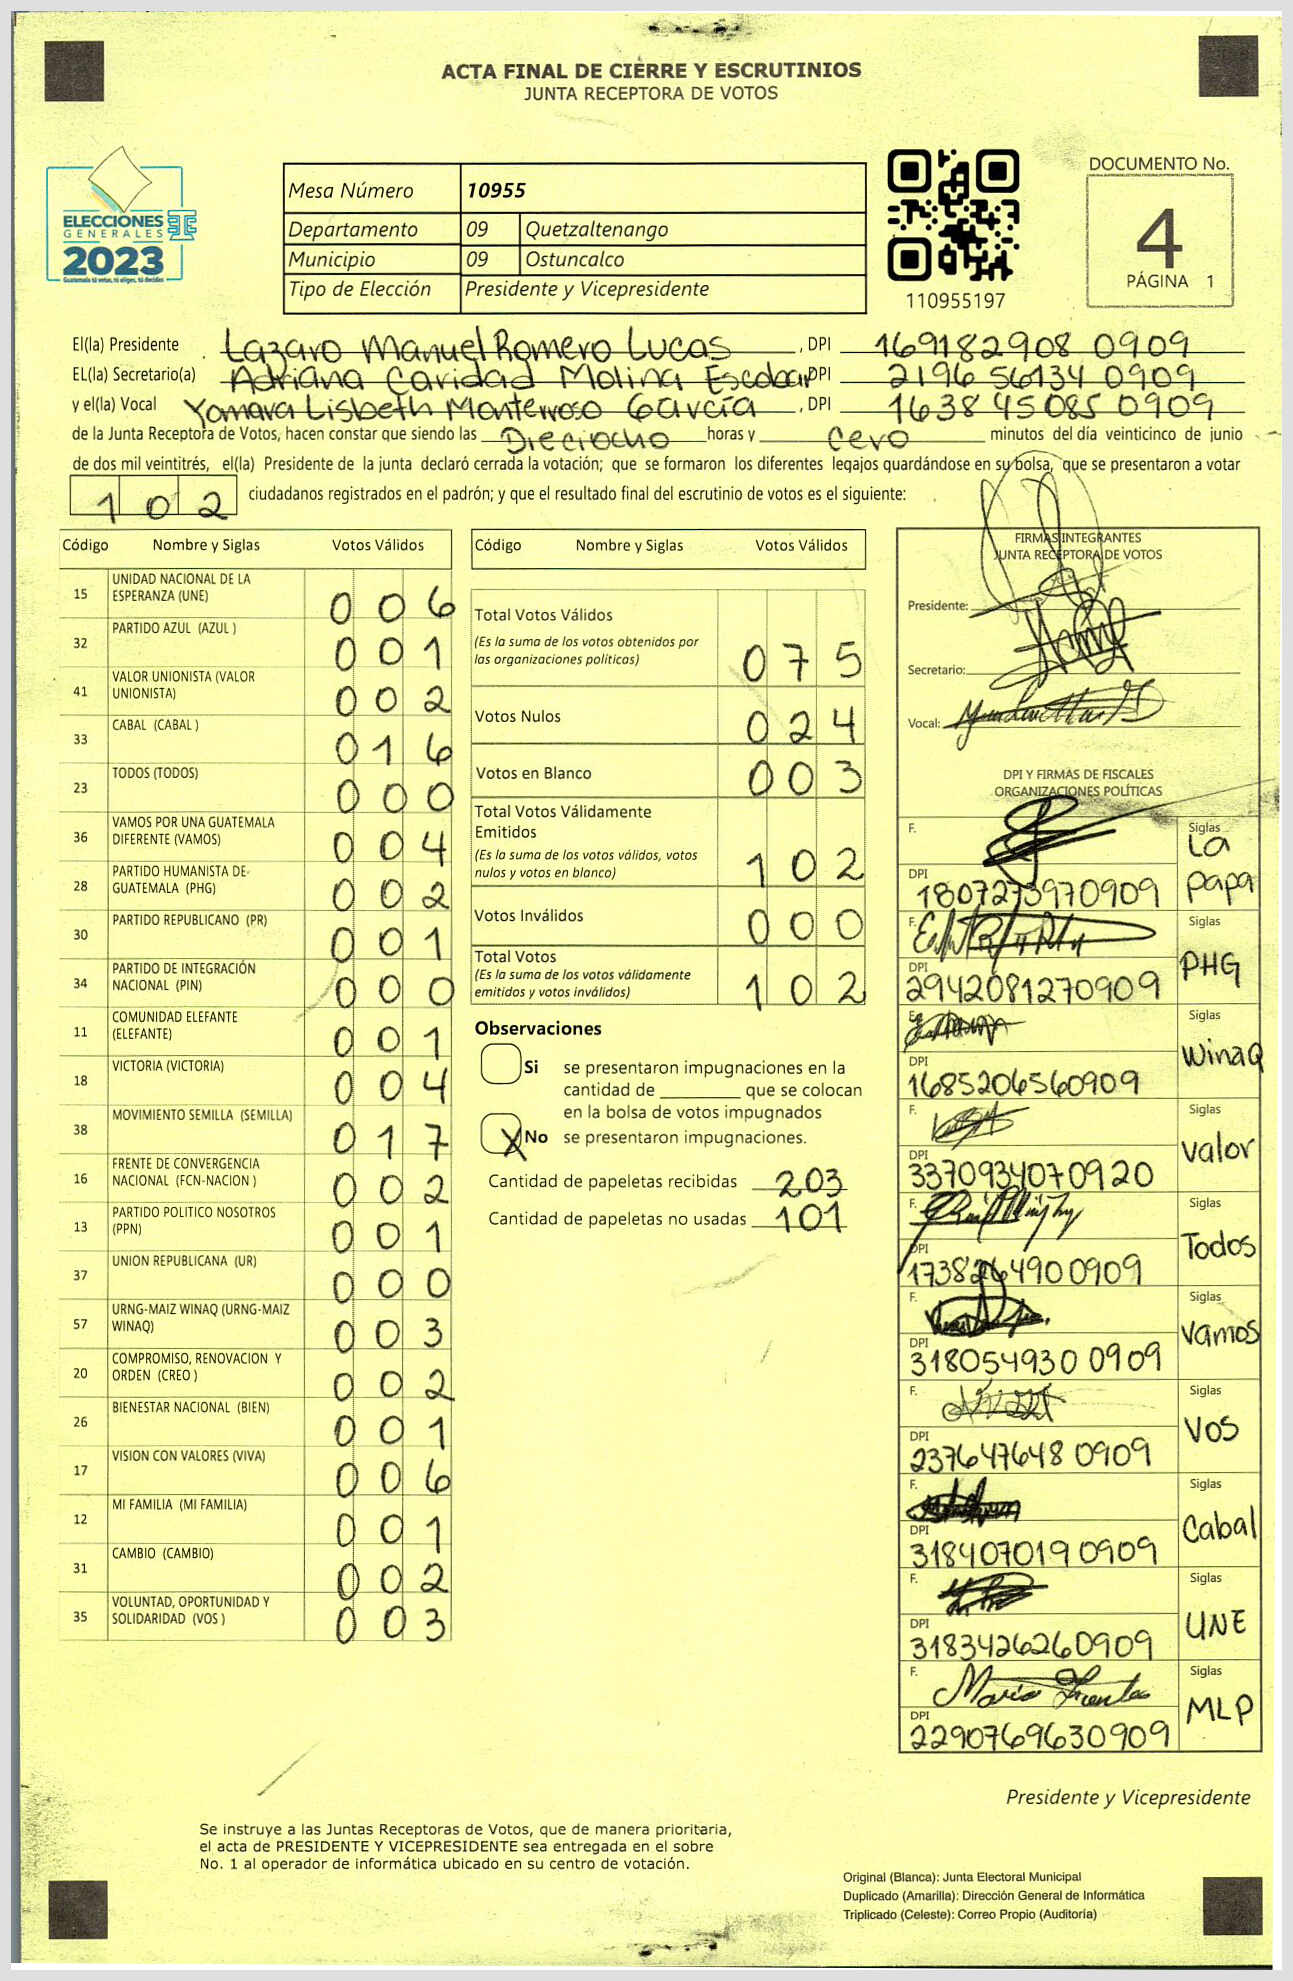 ACTA FINAL DE CIERRE Y ESCRUTINIOS
JUNTA RECEPTORA DE VOTOS
ELECCIONES
GENERALES
2023
Guatemala tú votas, tú eliges, tú decides
Mesa Número 10955
Departamento 09 Quetzaltenango
Municipio 09 Ostuncalco
Tipo de Elección Presidente y Vicepresidente
110955197
DOCUMENTO No.
4
PÁGINA 1
El(la) Presidente Lazaro Manuel Romero Lucas, DPI 169182908 0909
EL(la) Secretario(a) Adriana Caridad Molina Escobar DPI 2196 56134 0909
y el(la) Vocal Yomara Lisbeth Monterroso García, DPI 1638 45085 0909
de la Junta Receptora de Votos, hacen constar que siendo las Dieciocho horas y Cero minutos del día veinticinco de junio
de dos mil veintitrés, el(la) Presidente de la junta declaró cerrada la votación; que se formaron los diferentes legajos guardándose en su bolsa, que se presentaron a votar
102 ciudadanos registrados en el padrón; y que el resultado final del escrutinio de votos es el siguiente:
Código Nombre y Siglas Votos Válidos
15 UNIDAD NACIONAL DE LA ESPERANZA (UNE) 006
32 PARTIDO AZUL (AZUL ) 001
41 VALOR UNIONISTA (VALOR UNIONISTA) 002
33 CABAL (CABAL ) 016
23 TODOS (TODOS) 000
36 VAMOS POR UNA GUATEMALA DIFERENTE (VAMOS) 004
28 PARTIDO HUMANISTA DE GUATEMALA (PHG) 002
30 PARTIDO REPUBLICANO (PR) 001
34 PARTIDO DE INTEGRACIÓN NACIONAL (PIN) 000
11 COMUNIDAD ELEFANTE (ELEFANTE) 001
18 VICTORIA (VICTORIA) 004
38 MOVIMIENTO SEMILLA (SEMILLA) 017
16 FRENTE DE CONVERGENCIA NACIONAL (FCN-NACION ) 002
13 PARTIDO POLITICO NOSOTROS (PPN) 001
37 UNION REPUBLICANA (UR) 000
57 URNG-MAIZ WINAQ (URNG-MAIZ WINAQ) 003
20 COMPROMISO, RENOVACION Y ORDEN (CREO ) 002
26 BIENESTAR NACIONAL (BIEN) 001
17 VISION CON VALORES (VIVA) 006
12 MI FAMILIA (MI FAMILIA) 001
31 CAMBIO (CAMBIO) 002
35 VOLUNTAD, OPORTUNIDAD Y SOLIDARIDAD (VOS ) 003
Código Nombre y Siglas Votos Válidos
Total Votos Válidos
(Es la suma de los votos obtenidos por las organizaciones políticas) 075
Votos Nulos 024
Votos en Blanco 003
Total Votos Válidamente Emitidos
(Es la suma de los votos válidos, votos nulos y votos en blanco) 102
Votos Inválidos 000
Total Votos
(Es la suma de los votos válidamente emitidos y votos inválidos) 102
Observaciones
Si se presentaron impugnaciones en la
cantidad de ________ que se colocan
en la bolsa de votos impugnados
X No se presentaron impugnaciones.
Cantidad de papeletas recibidas 203
Cantidad de papeletas no usadas 101
FIRMAS INTEGRANTES
JUNTA RECEPTORA DE VOTOS
Presidente:
Secretario:
Vocal:
DPI Y FIRMAS DE FISCALES
ORGANIZACIONES POLÍTICAS
F. Siglas La Papa
DPI 1807273970909
F. Siglas PHG
DPI 2942081270909
F. Siglas WinaQ
DPI 1685206560909
F. Siglas Valor
DPI 3370934070920
F. Siglas Todos
DPI 1738264900909
F. Siglas Vamos
DPI 318054930 0909
F. Siglas VOS
DPI 237647648 0909
F. Siglas Cabal
DPI 318407019 0909
F. Siglas UNE
DPI 3183426260909
F. Mario Fuentes Siglas MLP
DPI 2290769630909
Presidente y Vicepresidente
Se instruye a las Juntas Receptoras de Votos, que de manera prioritaria,
el acta de PRESIDENTE Y VICEPRESIDENTE sea entregada en el sobre
No. 1 al operador de informática ubicado en su centro de votación.
Original (Blanca): Junta Electoral Municipal
Duplicado (Amarilla): Dirección General de Informática
Triplicado (Celeste): Correo Propio (Auditoría)